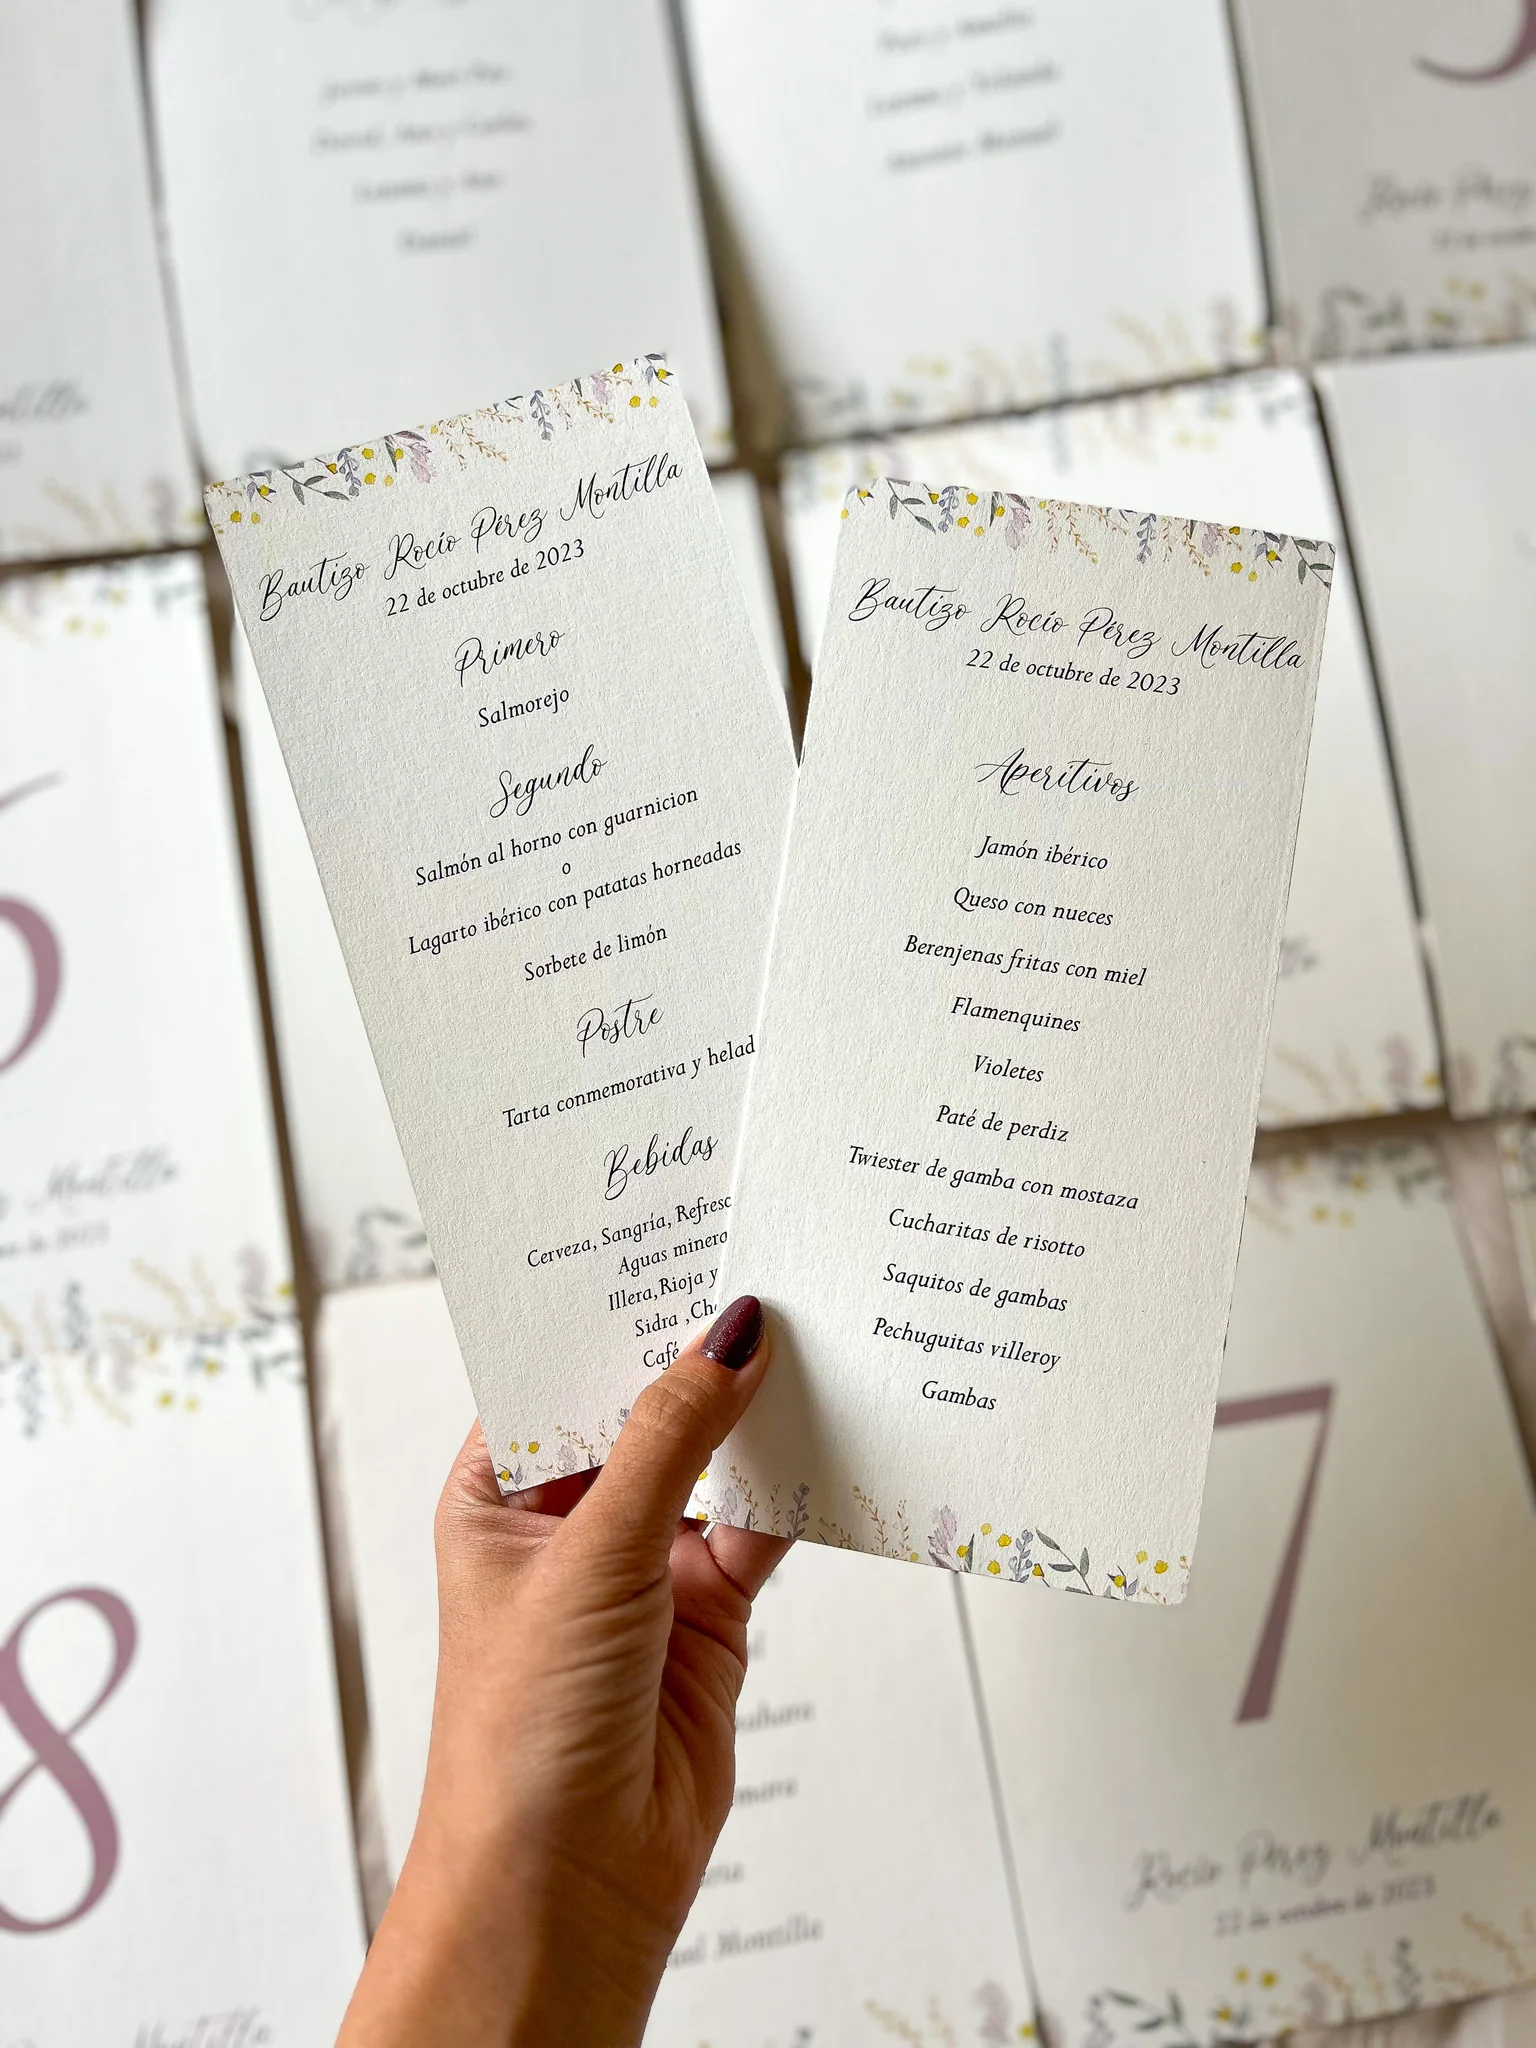 Bautizo Rocío Pérez Montilla
22 de octubre de 2023
Primero
Salmorejo
Segundo
Salmón al horno con guarnicion
o
Lagarto ibérico con patatas horneadas
Sorbete de limón
Postre
Tarta conmemorativa y helad
Bebidas
Cerveza, Sangría, Refresc
Aguas minera
Illera, Rioja y
Sidra ,Ch
Café
Bautizo Rocío Pérez Montilla
22 de octubre de 2023
Aperitivos
Jamón ibérico
Queso con nueces
Berenjenas fritas con miel
Flamenquines
Violetes
Paté de perdiz
Twiester de gamba con mostaza
Cucharitas de risotto
Saquitos de gambas
Pechuguitas villeroy
Gambas
6
8
7
Rocío Pérez Montilla
22 de octubre de 2023
Montilla